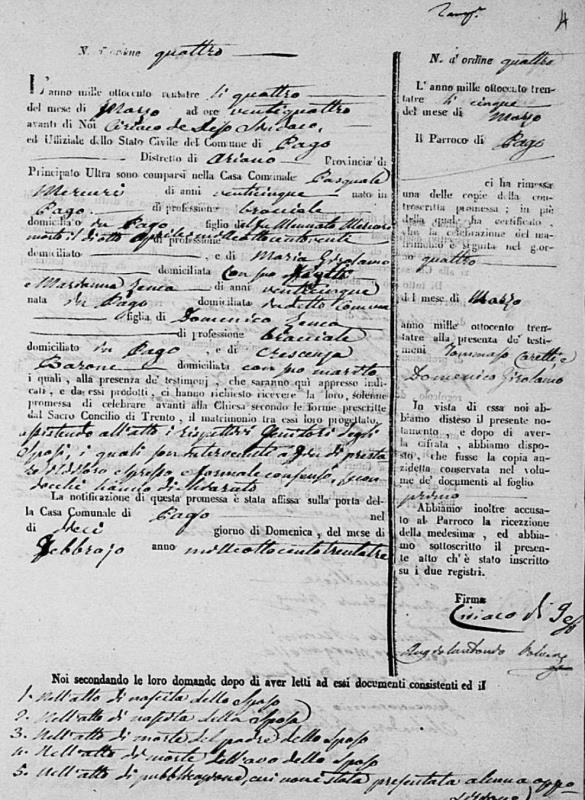 4
N. d'ordine quattro
L'anno mille ottocento trentatre li quattro
del mese di Marzo ad ore ventiquattro
avanti di Noi Ciriaco de Sindaco,
ed Uffiziale dello Stato Civile del Comune di Pago
Distretto di Ariano Provincia di
Principato Ultra sono comparsi nella Casa Comunale Pasquale
Mercuri di anni venticinque nato in
Pago di professione bracciale
domiciliato in Pago figlio del
morto il di otto Aprile mille ottocento venti
domiciliato e di Maria Girolamo
domiciliata con
e Marianna Zenca di anni venticinque
nata in Pago domiciliata in detto Comune
figlia di Domenico Zenca
di professione bracciale
domiciliato in Pago, e di Crescenza
Barone domiciliata con suo marito
i quali, alla presenza de' testimonj, che saranno qui appresso indi-
cati, e da essi prodotti, ci hanno richiesto ricevere la loro, solenne
promessa di celebrare avanti alla Chiesa secondo le forme prescritte
dal Sacro Concilio di Trento, il matrimonio tra essi loro progettato,
assistendo all'atto i rispettivi Genitori degli
Sposi, i quali son intervenuti a fin di presta
re il di loro espresso, e formale consenso,
hanno dichiarato
La notificazione di questa promessa è stata affissa sulla porta del-
la Casa Comunale di Pago nel
di dieci giorno di Domenica, del mese di
Febbrajo anno mille ottocento trentatre
N. d'ordine quattro
L'anno mille ottocento tren-
tatre li cinque
del mese di Marzo
Il Parroco di Pago
ci ha rimessa
una delle copie della con-
troscritta promessa; in piè
della qual ha certificato,
che la celebrazione del ma-
trimonio è seguita nel gior-
no quattro
del mese di Marzo
anno mille ottocento tren-
tatre alla presenza de' testi-
monj Tommaso e
Domenico Girolamo
In vista di essa noi ab-
biamo disteso il presente no-
tamento, e dopo di aver-
la cifrata, abbiamo dispo-
sto, che fusse la copia an-
zidetta conservata nel volu-
me de' documenti al foglio
primo
Abbiamo inoltre accusa-
to al Parroco la ricezione
della medesima, ed abbia-
mo sottoscritto il presen-
te atto ch'è stato inscritto
su i due registri.
Firma
Ciriaco di
Noi secondando le loro domande dopo di aver letti ad essi documenti consistenti ed il
1. Nell'atto di nascita dello Sposo
2. Nell'atto di nascita della Sposa
3. Nell'atto di morte del padre dello Sposo
4. Nell'atto di morte dell'avo dello Sposo
5. Nell'atto di pubblicazione, cui non è stata presentata alcuna oppo